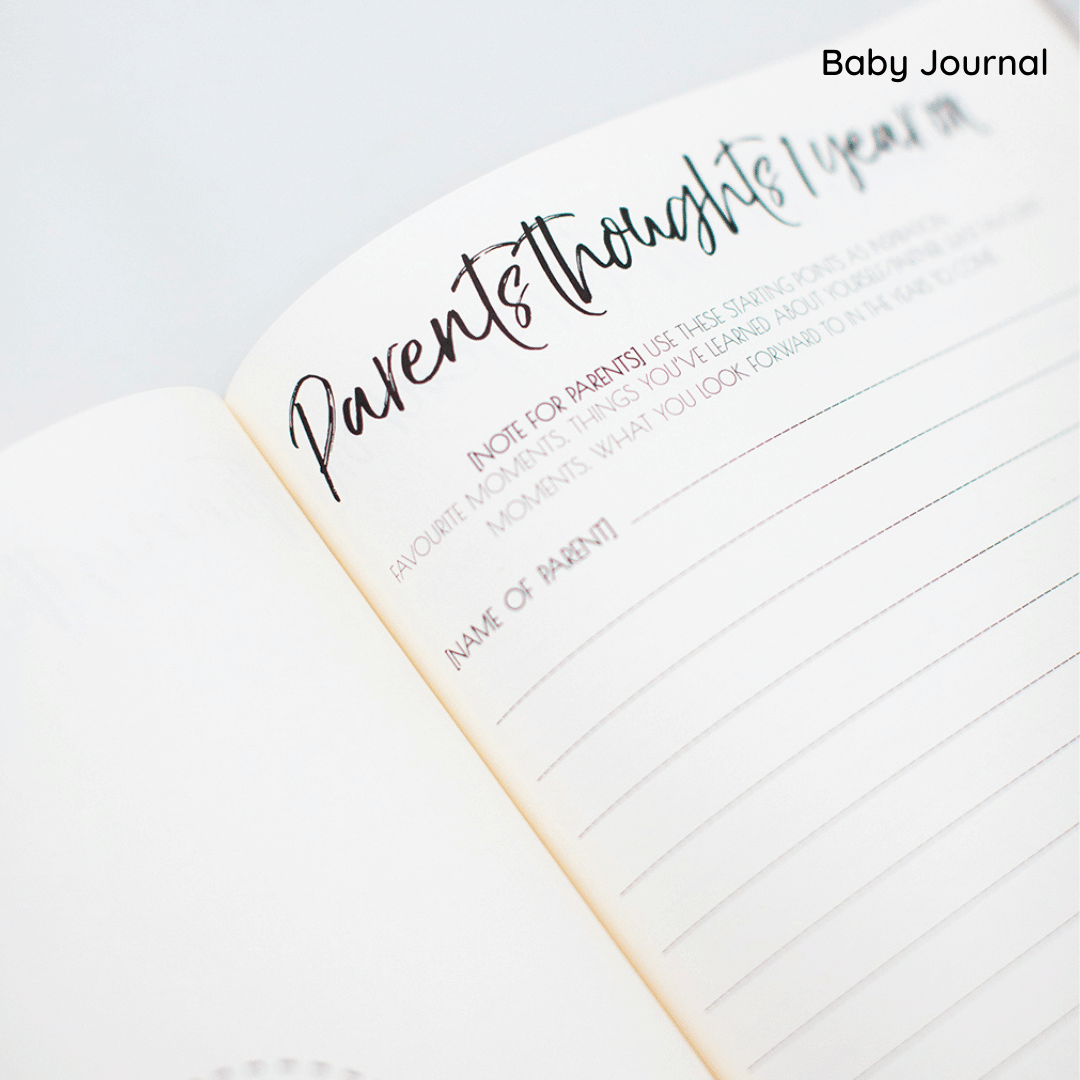 Baby Journal
Parents thoughts 1 year on
[NOTE FOR PARENTS] USE THESE STARTING POINTS AS INSPIRATION
FAVOURITE MOMENTS, THINGS YOU'VE LEARNED ABOUT YOURSELF/PARTNER
MOMENTS, WHAT YOU LOOK FORWARD TO IN THE YEARS TO COME.
[NAME OF PARENT]